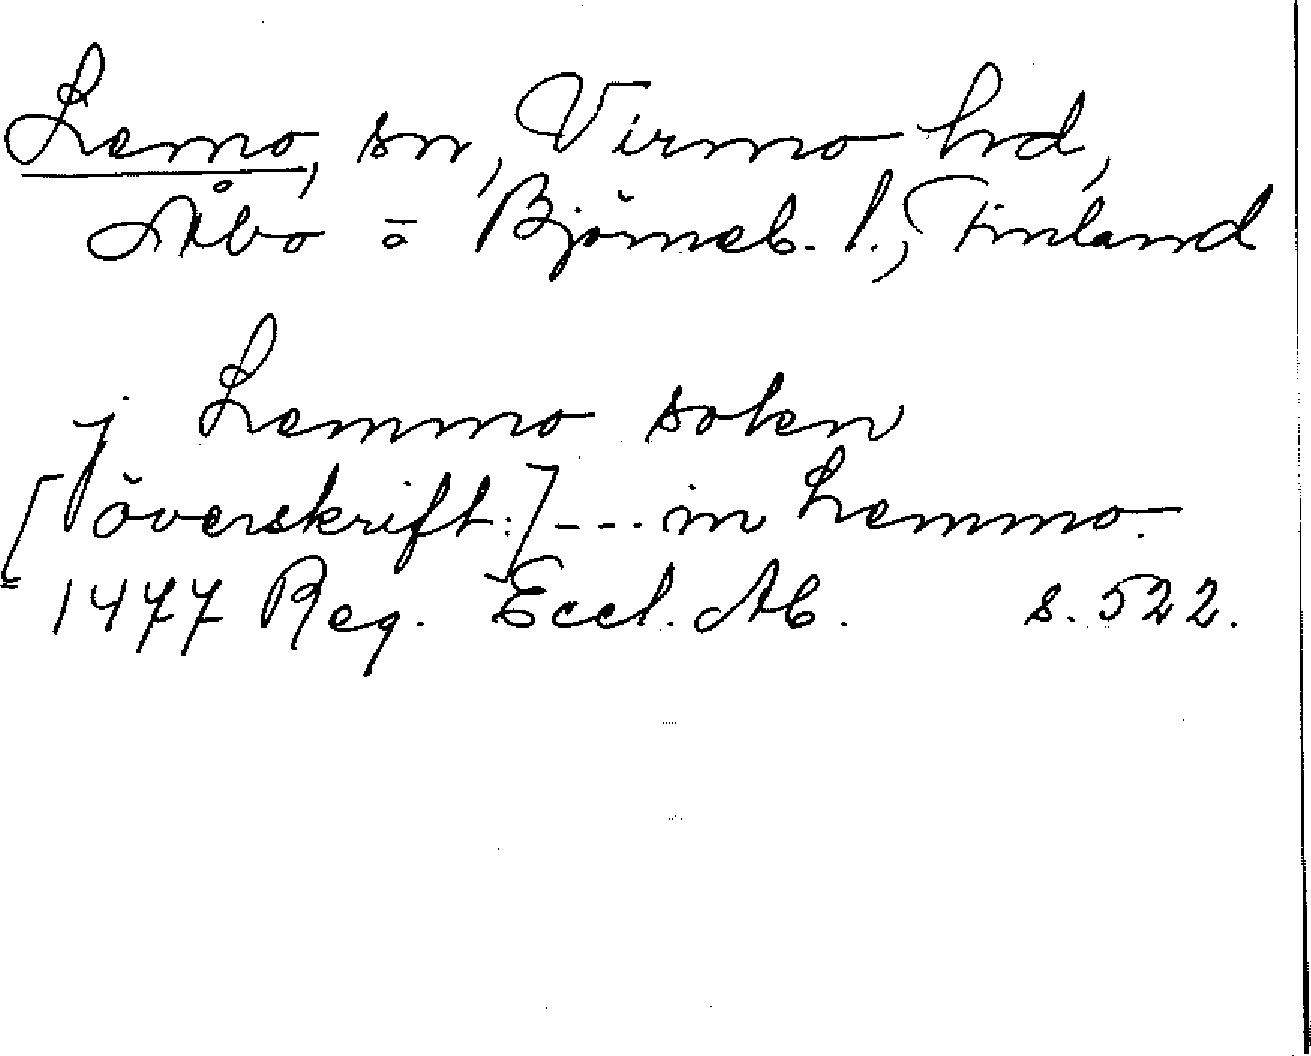 Lemo, sn, Virmo hd,
Åbo o Björneb. l., Finland
j Lemmo soken
[överskrift:] --- in Lemmo.
1477 Reg. Eccl. Ab. s. 522.